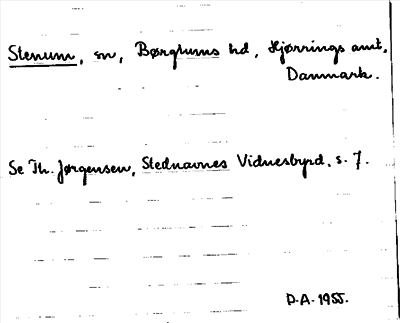 Stenum, sn, Børglums hd, Hjørrings amt,
Danmark.
Se Th. Jørgensen, Stednavnes Vidnesbyrd, s. 7.
D.A. 1955.